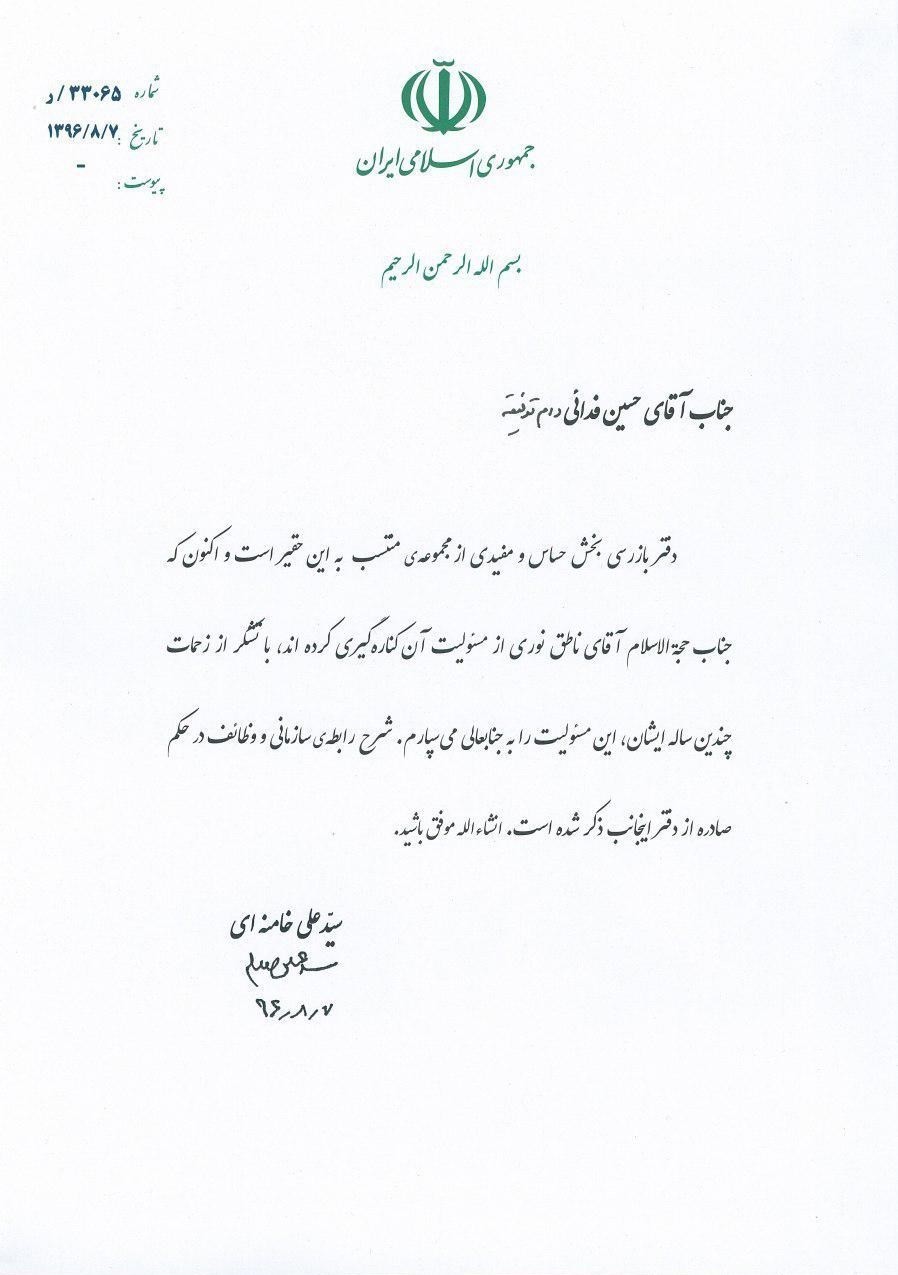 شماره ۳۳۰۶۵/د
تاریخ: ۱۳۹۶/۸/۷
-
پیوست:
جمهوری اسلامی ایران
بسم الله الرحمن الرحیم
جناب آقای حسین فدائی دام توفیقه
دفتر بازرسی بخش حساس و مفیدی از مجموعه‌ی منتسب به این حقیر است و اکنون که
جناب حجةالاسلام آقای ناطق نوری از مسئولیت آن کناره‌گیری کرده اند، با تشکر از زحمات
چندین ساله ایشان، این مسئولیت را به جنابعالی می‌سپارم. شرح رابطه‌ی سازمانی و وظائف در حکم
صادره از دفتر اینجانب ذکر شده است. انشاءالله موفق باشید.
سیّد علی خامنه ای
۹۶/۸/۷